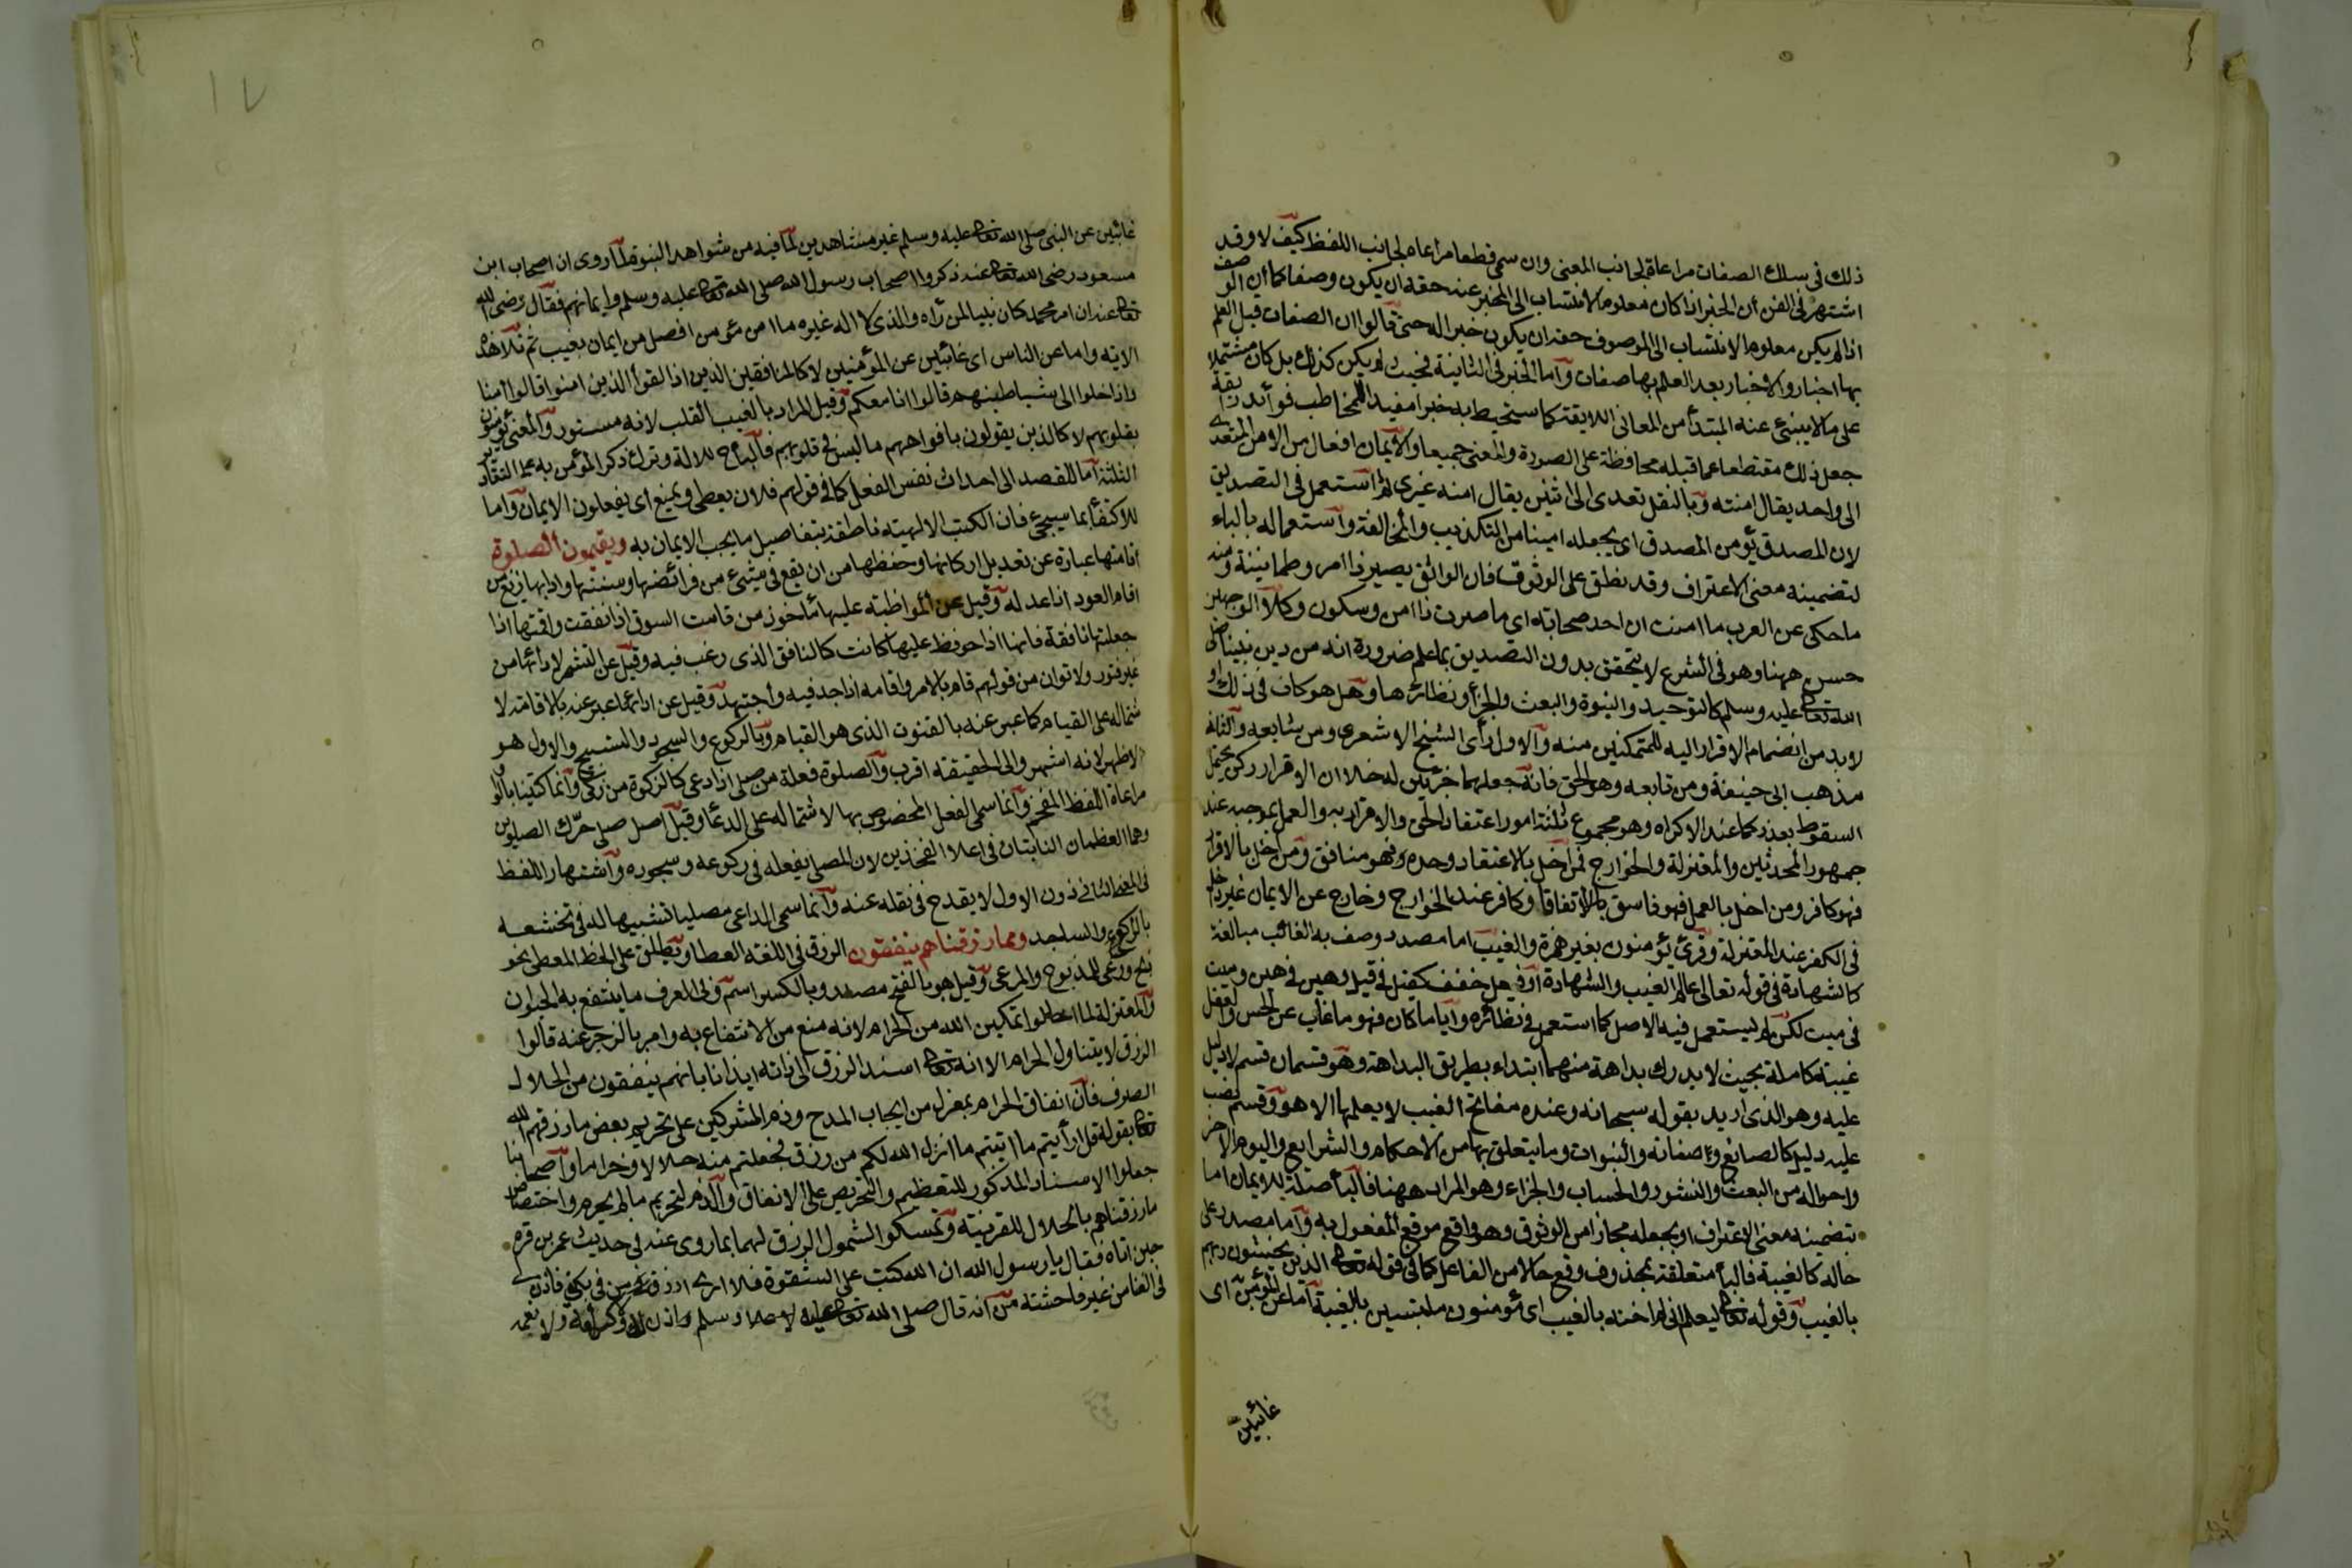 ذلك فى سلك الصفات مراعاة لجانب المعنى وان سمى قطعا مراعاه لجانب اللفظ كيف لا وقد
اشتهر فى الفن أن الخبر اذا كان معلوم الانتساب الى المخبر عنه حقه ان يكون وصفا كما أن الوصف
اذا لم يكن معلوم الانتساب الى الموصوف حقه ان يكون خبرا له حتى قالوا ان الصفات قبل العلم
بها اخبار والاخبار بعد العلم بها صفات واما الخبر فى الثانية فحيث لم يكن كذلك بل كان مشتملا
على ما لا ينبئ عنه المبتدأ من المعانى اللايقة كما ستحيط به خبرا مفيدا للمخاطب فوائد رايقة
جعل ذلك مقتطعا عما قبله محافظة على الصورة والمعنى جميعا والايمان افعال من الامن المتعدى
الى واحد يقال امنته وبالنقل تعدى الى اثنين يقال امنه غيرى ثم استعمل فى التصديق
لان المصدق يؤمن المصدق اى يجعله امينا من التكذيب والمخالفة واستعماله بالباء
لتضمينه معنى الاعتراف وقد يطلق على الوثوق فان الواثق يصير ذا امن وطمانينة ومنه
ما حكى عن العرب ما امنت ان احد صحابة اى ما صرت ذا امن وسكون وكلا الوجهين
حسن ههنا وهو فى الشرع لا يتحقق بدون التصديق بما علم ضرورة انه من دين نبينا صلى
الله تعالى عليه وسلم كالتوحيد والنبوة والبعث والجزأ ونظائرها وهل هو كاف فى ذلك او
لا بد من انضمام الاقرار اليه للمتمكنين منه والاول رأى الشيخ الاشعرى ومن شايعه والثانى
مذهب ابى حنيفة ومن تابعه وهو الحق فانه جعلهما جزئين له خلا ان الاقرار ركن يحتمل
السقوط بعذر كما عند الاكراه وهو مجموع ثلثة امور اعتقاد الحق والاقرار به والعمل بموجبه عند
جمهور المحدثين والمعتزلة والخوارج فمن اخل بالاعتقاد وحده فهو منافق ومن اخل بالاقرار
فهو كافر ومن اخل بالعمل فهو فاسق بالاتفاقا وكافر عند الخوارج وخارج عن الايمان غير داخل
فى الكفر عند المعتزلة وقرئ يؤمنون بغير همزة والغيب اما مصدر وصف به الغائب مبالغة
كالشهادة فى قوله تعالى عالم الغيب والشهادة او فيعل خفف كقيل فى قيل وهين فى هين وميت
فى ميت لكن لم يستعمل فيه الاصل كما استعمل فى نظائره وايا ما كان فهو ما غاب عن الحس والعقل
غيبة كاملة بحيث لا يدرك بداهة منهما ابتداء بطريق البداهة وهو قسمان قسم لا دليل
عليه وهو الذى اريد بقوله سبحانه وعنده مفاتح الغيب لا يعلمها الا هو وقسم نصب
عليه دليل كالصانع وصفاته والنبوات وما يتعلق بها من الاحكام والشرايع واليوم الاخر
واحواله من البعث والنشور والحساب والجزاء وهو المراد ههنا فالبأ صلة للايمان اما
بتضمينه معنى الاعتراف او بجعله مجازا من الوثوق وهو واقع موقع المفعول به واما مصدر على
حاله كالغيبة فالبأ متعلقة بمحذوف وقع حالا من الفاعل كما فى قوله تعالى الذين يخشون ربهم
بالغيب وقوله تعالى ليعلم انى لم اخنه بالغيب اى يؤمنون ملتبسين بالغيبة اما عن المؤمن اى
غائبين
١٧
غائبين عن النبى صلى الله تعالى عليه وسلم غير مشاهدين لما فيه من شواهد النبوة لما روى ان اصحاب ابن
مسعود رضى الله تعالى عنه ذكروا اصحاب رسول الله صلى الله تعالى عليه وسلم وايمانهم فقال رضى الله
تعالى عنه ان امر محمد كان بينا لمن رأه والذى لا اله غيره ما امن مؤمن افضل من ايمان بغيب ثم تلا هذه
الاية واما عن الناس اى غائبين عن المؤمنين لا كالمنافقين الذين اذا لقوا الذين امنوا قالوا امنا
واذا خلوا الى شياطينهم قالوا انا معكم وقيل المراد بالغيب القلب لانه مستور والمعنى يؤمنون
بقلوبهم لا كالذين يقولون بافواههم ما ليس فى قلوبهم فالبأ ح للالة وترك ذكر المؤمن به على التقادير
الثلثة اما للقصد الى احداث نفس الفعل كما فى قولهم فلان يعطى ويمنع اى يفعلون الايمان واما
للاكتفأ بما سيجئ فان الكتب الالهيته ناطقة بتفاصيل ما يجب الايمان به ويقيمون الصلوة
اقامتها عبارة عن تعديل اركانها وحفظها من ان يقع فى شيئ من فرائضها وسننها وادابها زيغ من
اقام العود اذا عدله وقيل عن المواظبة عليها ماخوذ من قامت السوق اذا نفقت واقمتها اذا
جعلتها نافقة فانها اذا حوفظ عليها كانت كالنافق الذى رغب فيه وقيل عن التشمر لادائها من
غير فتور ولا توان من قولهم قام بالامر واقامه اذا جد فيه واجتهد وقيل عن ادائها عبر عنه بالاقامة لا
شتماله على القيام كما عبر عنه بالقنوت الذى هو القيام وبالركوع والسجود والتسبيح والاول هو
الاظهر لانه اشهر والى الحقيقة اقرب والصلوة فعلة من صلى اذا دعى كالزكوة من زكى وانما كتبتا بالواو
مراعاة اللفظ المفخم وانما سمى الفعل المخصوص بها لاشتماله على الدعأ وقيل اصل صلى حرك الصلوين
وهما العظمان الناتيان فى اعلا الفخذين لان المصلى يفعله فى ركوعه وسجوده واشتهار اللفظ
فى المعنى الثانى دون الاول لا يقدح فى نقله عنه وانما سمى الداعى مصليا تشبيها له فى تخشعه
بالراكع والساجد ومما رزقناهم ينفقون الرزق فى اللغة العطا ويطلق على الحظ المعطى نحو
ذبح ورعى للمذبوح والمرعى وقيل هو بالفتح مصدر وبالكسر اسم وفى العرف ما ينتفع به الحيوان
والمعتزلة لما احالوا تمكين الله من الحرام لانه منع من الانتفاع به وامر بالزجر عنه قالوا
الرزق لا يتناول الحرام الا انه تعالى اسند الرزق الى ذاته ايذانا بانهم ينفقون من الحلال
الصرف فان انفاق الحرام بمعزل من ايجاب المدح وذم المشركين على تحريم بعض ما رزقهم الله
تعالى بقوله قل ارأيتم ما انزل الله لكم من رزق فجعلتم منه حلالا وحراما واصحابنا
جعلوا الاسناد المذكور للتعظيم والتحريض على الانفاق والذم لتحريم ما لم يحرم واختصاص
ما رزقناهم بالحلال للقرينة وتمسكوا لشمول الرزق لهما بما روى عنه فى حديث عمر بن قره
حين اتاه فقال يا رسول الله ان الله كتب على الشقوة فلا ارى ارزق من فى بكفى فاذن لى
فى الغنا من غير فاحشة من انه قال صلى الله تعالى عليه وسلم لا اذن لك ولا كرامة ولا نعمة